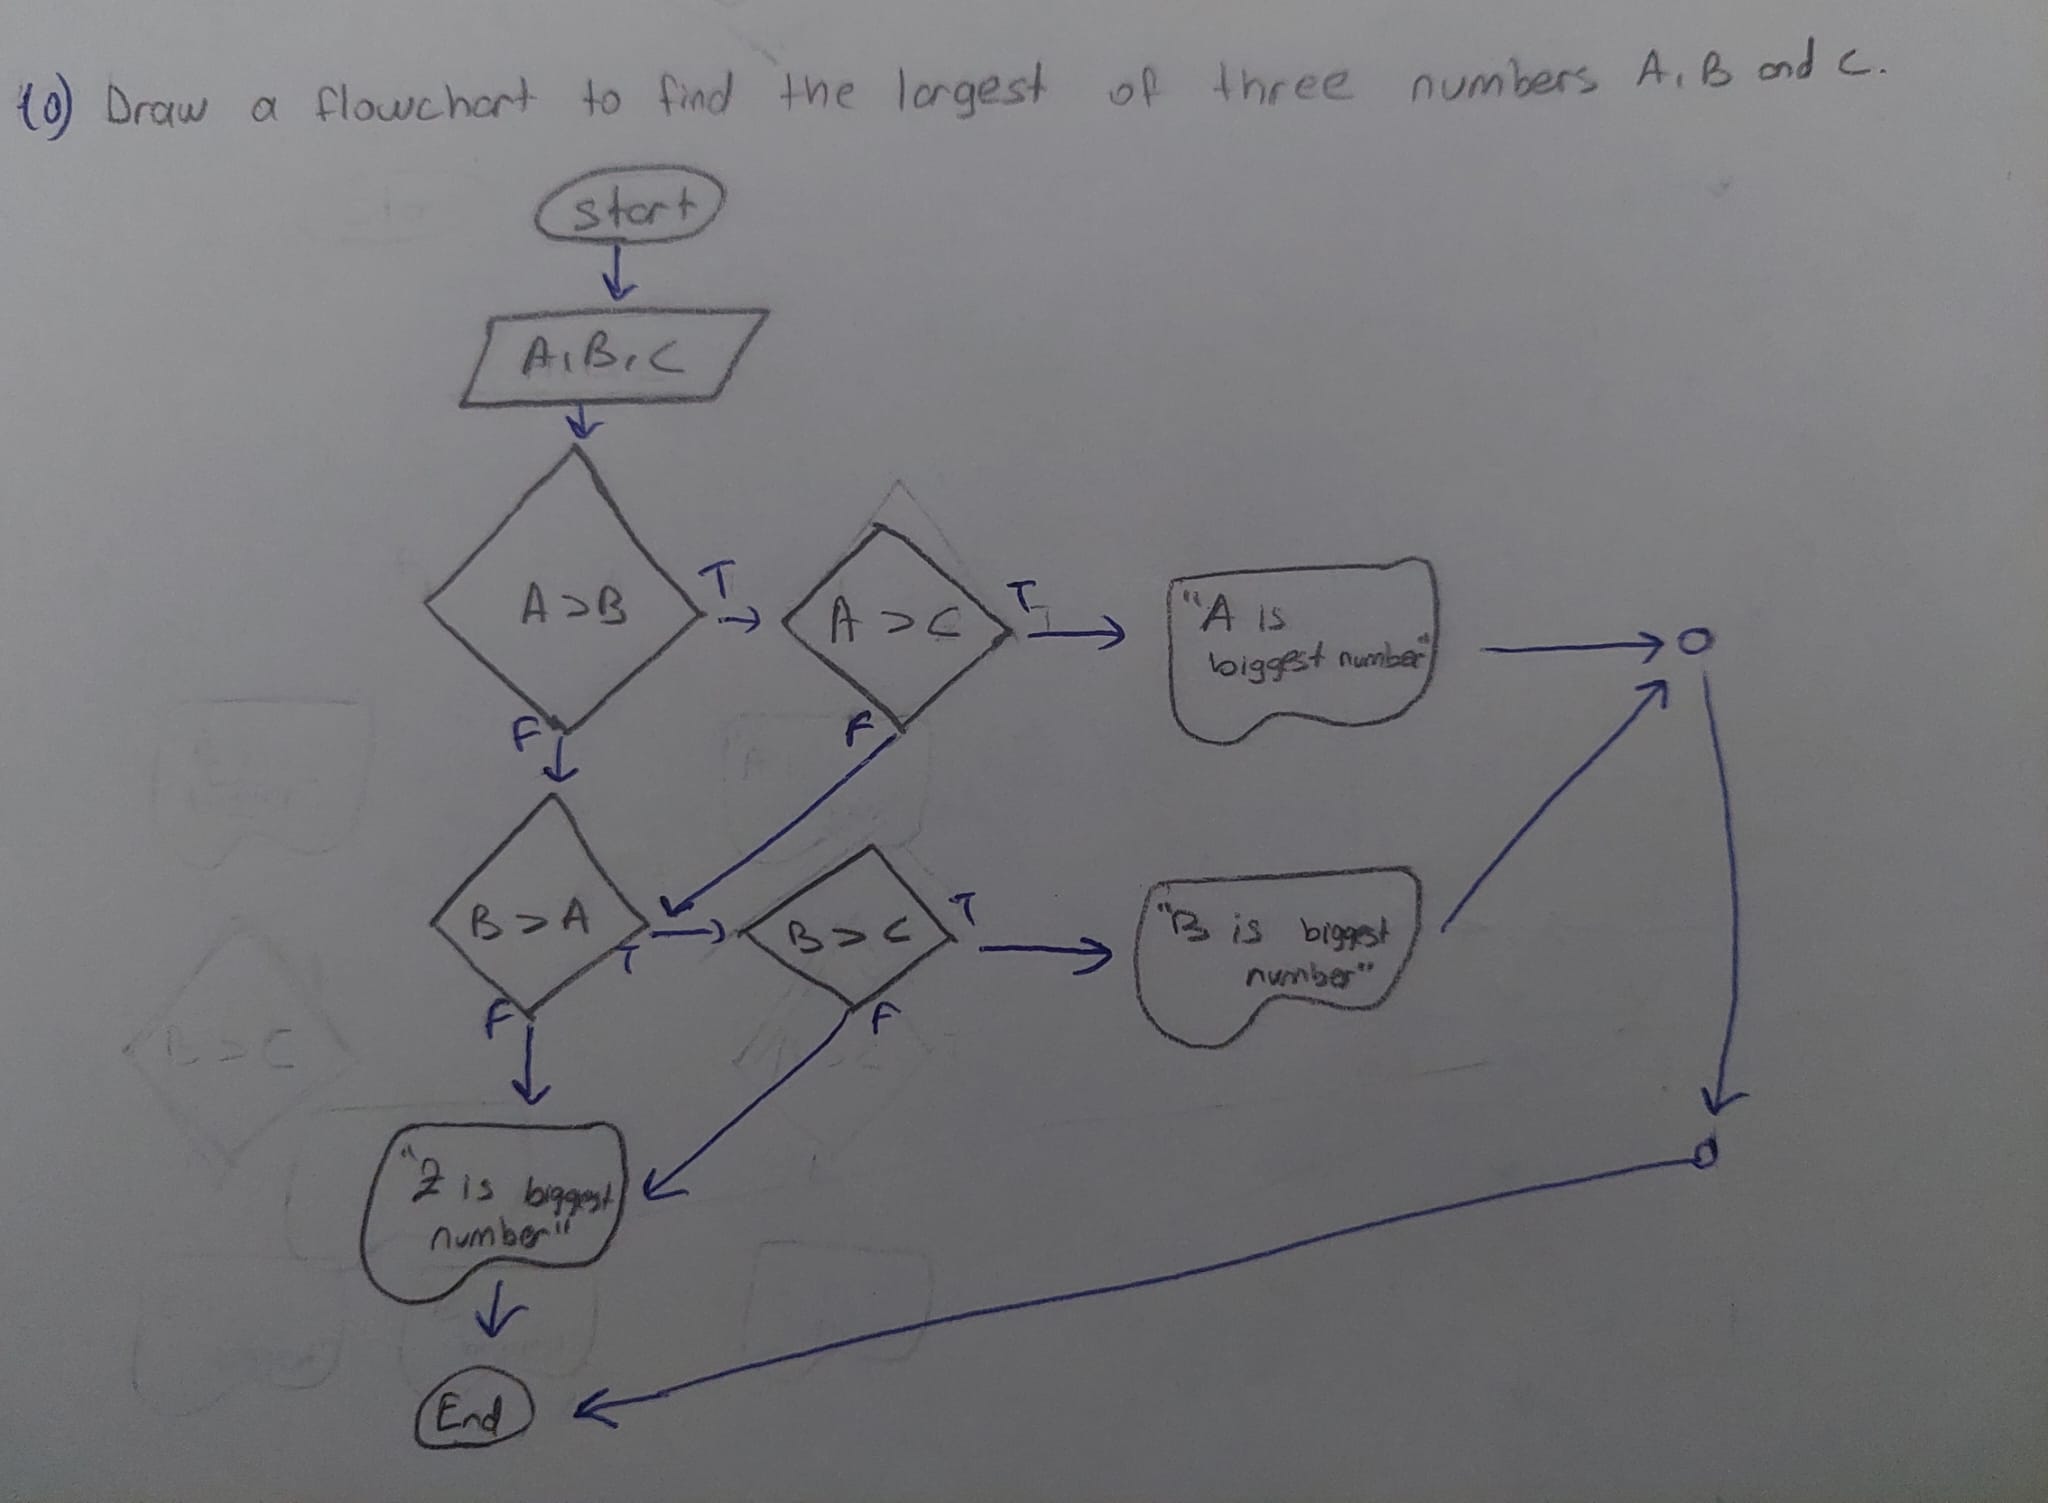 10) Draw a flowchart to find the largest of three numbers A, B and C.
start
A, B, C
A > B
T
A > C
T
"A is
biggest number"
F
F
B > A
T
B > C
T
"B is biggest
number"
F
F
"Z is biggest
number"
End